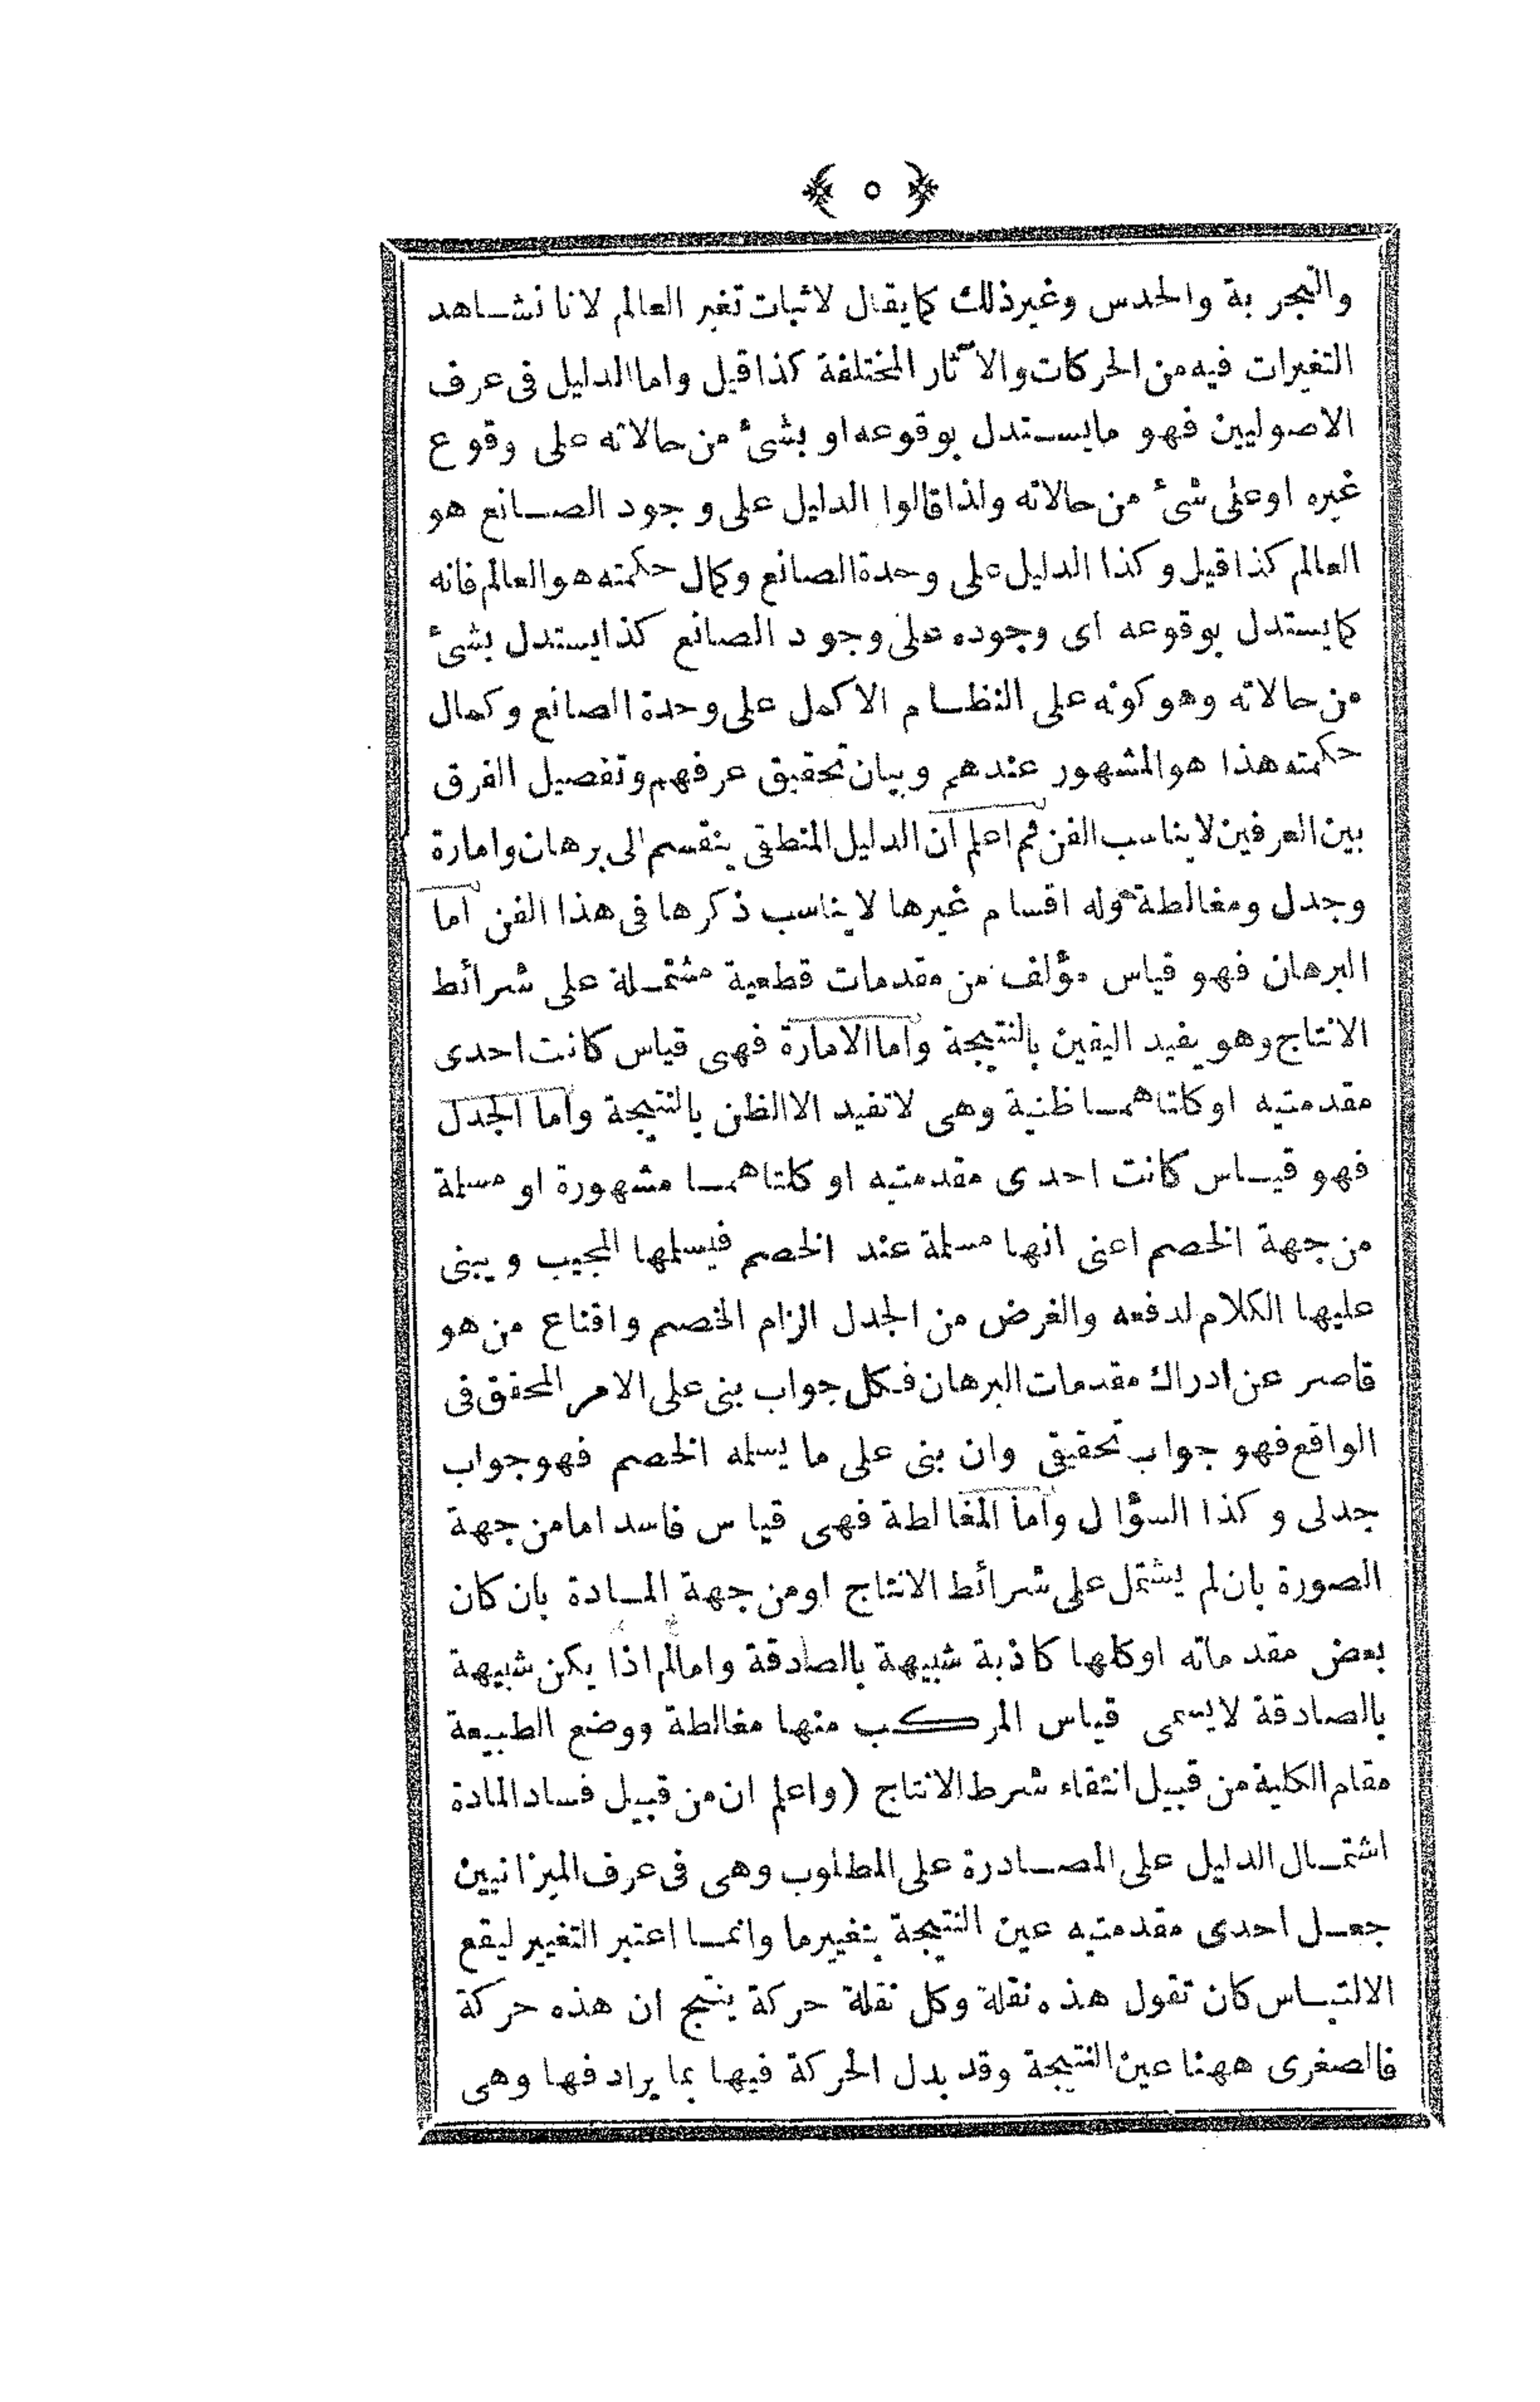 ﴿ ٥ ﴾
والتجربة والحدس وغير ذلك كما يقال لاثبات تغير العالم لانا نشاهد
التغيرات فيه من الحركات والآثار المختلفة كذا قيل واما الدليل فى عرف
الاصوليين فهو ما يستدل بوقوعه او بشئ من حالاته على وقوع
غيره او على شئ من حالاته ولذا قالوا الدليل على وجود الصانع هو
العالم كذا قيل وكذا الدليل على وحدة الصانع وكمال حكمته هو العالم فانه
كما يستدل بوقوعه اى وجوده على وجود الصانع كذا يستدل بشئ
من حالاته وهو كونه على النظام الاكمل على وحدة الصانع وكمال
حكمته هذا هو المشهور عندهم وبيان تحقيق عرفهم وتفصيل الفرق
بين العرفين لا يناسب الفن ثم اعلم ان الدليل المنطقى ينقسم الى برهان وامارة
وجدل ومغالطة وله اقسام غيرها لا يناسب ذكرها فى هذا الفن اما
البرهان فهو قياس مؤلف من مقدمات قطعية مشتملة على شرائط
الانتاج وهو يفيد اليقين بالنتيجة واما الامارة فهى قياس كانت احدى
مقدمتيه او كلتاهما ظنية وهى لا تفيد الا الظن بالنتيجة واما الجدل
فهو قياس كانت احدى مقدمتيه او كلتاهما مشهورة او مسلمة
من جهة الخصم اعنى انها مسلمة عند الخصم فيسلمها المجيب ويبنى
عليها الكلام لدفعه والغرض من الجدل الزام الخصم واقناع من هو
قاصر عن ادراك مقدمات البرهان فكل جواب بنى على الامر المحقق فى
الواقع فهو جواب تحقيقى وان بنى على ما يسلمه الخصم فهو جواب
جدلى وكذا السؤال واما المغالطة فهى قياس فاسد اما من جهة
الصورة بان لم يشتمل على شرائط الانتاج او من جهة المادة بان كان
بعض مقدماته او كلها كاذبة شبيهة بالصادقة واما لم اذا يكن شبيهة
بالصادقة لا يسمى قياس المركب منها مغالطة ووضع الطبيعة
مقام الكلية من قبيل انتفاء شرط الانتاج (واعلم ان من قبيل فساد المادة
اشتمال الدليل على المصادرة على المطلوب وهى فى عرف الميزانيين
جعل احدى مقدمتيه عين النتيجة بتغيير ما وانما اعتبر التغيير ليقع
الالتباس كان تقول هذه نقلة وكل نقلة حركة ينتج ان هذه حركة
فالصغرى ههنا عين النتيجة وقد بدل الحركة فيها بما يرادفها وهى